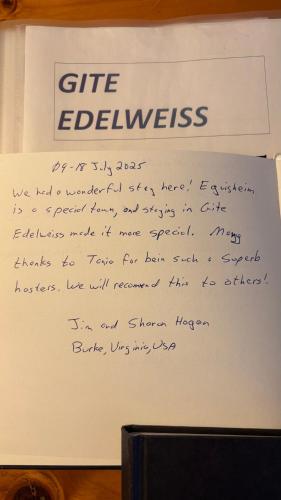 GITE
EDELWEISS
09-18 July 2025
We had a wonderful stay here! Eguisheim
is a special town, and staying in Gite
Edelweiss made it more special. Many
thanks to Tania for bein such a superb
hosters. We will recomend this to others!
Jim and Sharon Hogan
Burke, Virginia, USA